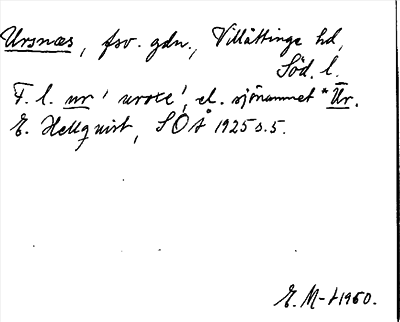 Ursnäs, fsv. gdn., Villåttinge hd,
Söd. l.
F. l. ur 'uroxe', el. sjönamnet *Ur.
E. Hellquist, SOÅ 1925 s. 5.
E. M-t 1960.